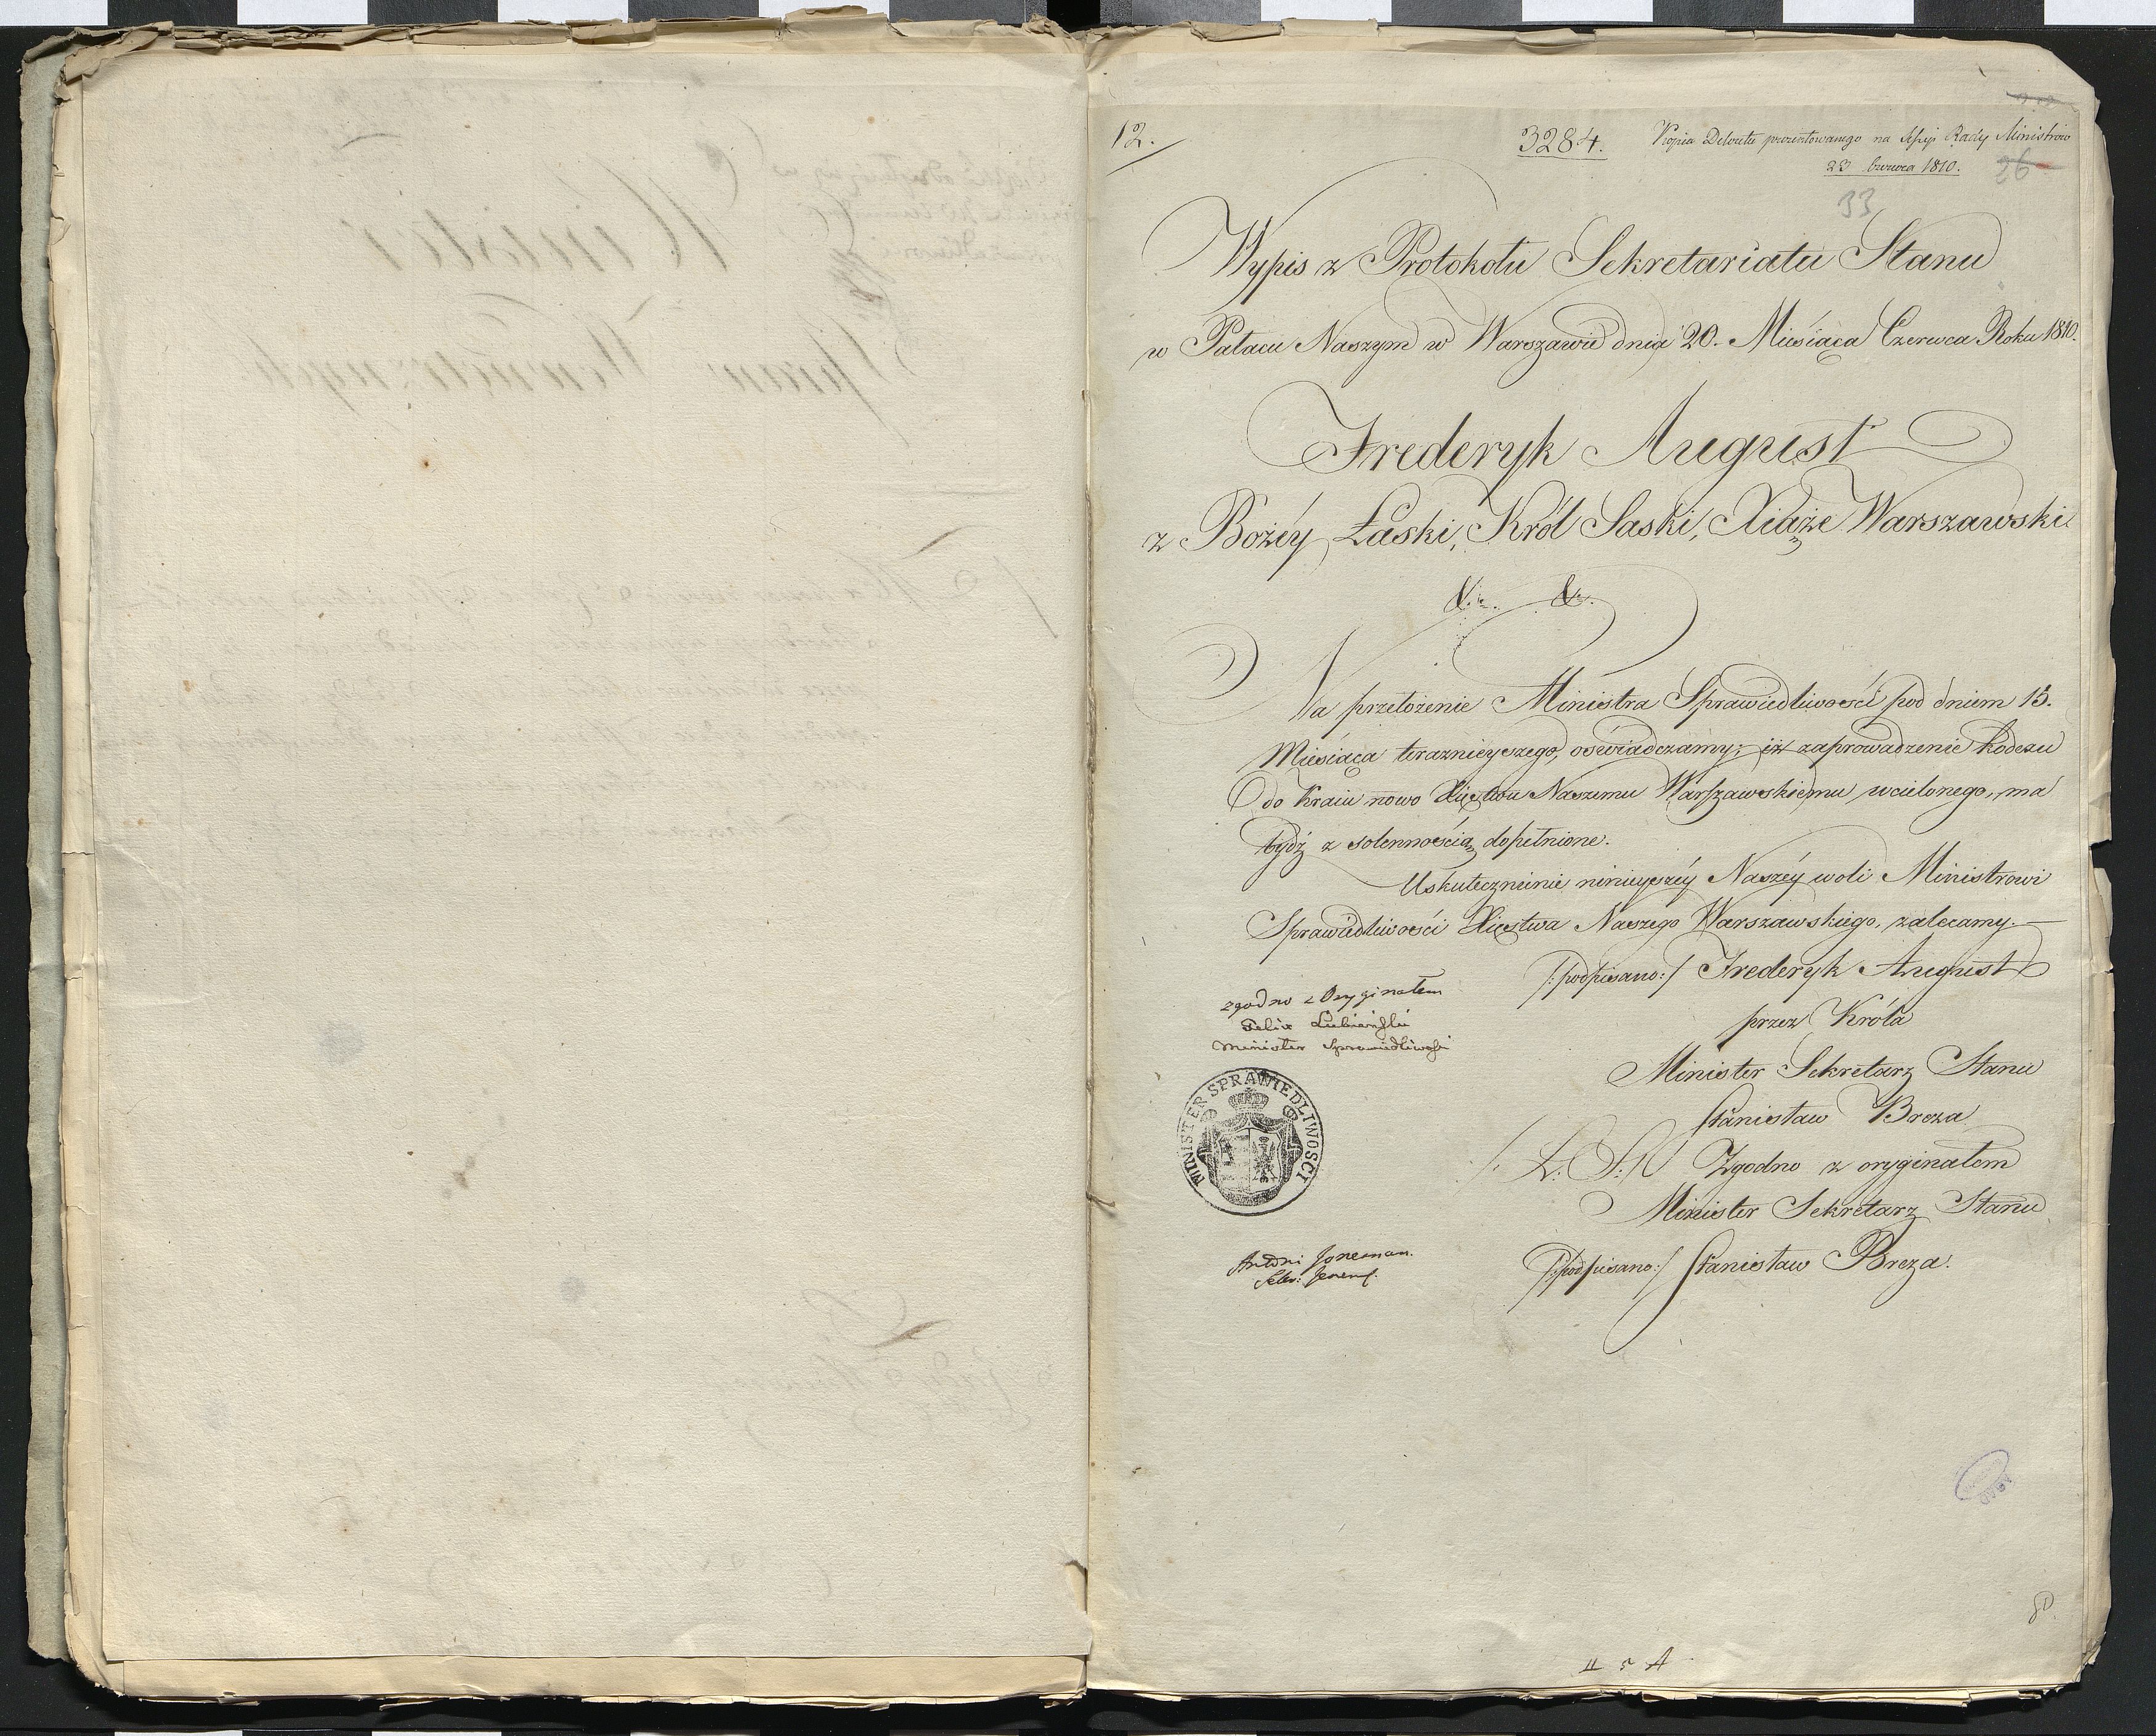 12.
3284.
Kopia Dekretu prezentowanego na Sessyi Rady Ministrow
23 Czerwca 1810.
26
33
Wypis z Protokołu Sekretariatu Stanu
w Pałacu Naszym w Warszawie dnia 20. Miesiąca Czerwca Roku 1810.
Frederyk August
z Bożéy Łaski, Król Saski, Xiąże Warszawski
&c. &c.
Na przełożenie Ministra Sprawiedliwości pod dniem 15.
Miesiąca teraznieyszego, oświadczamy; iż zaprowadzenie Kodexu
do Kraiu nowo Xięstwu Naszemu Warszawskiemu wcielonego, ma
bydź z solennością dopełnione.
Uskutecznienie ninieyszéy Naszéy woli Ministrowi
Sprawiedliwości Xięstwa Naszego Warszawskiego, zalecamy.
/:podpisano:/ Frederyk August
przez Króla
Minister Sekretarz Stanu
Stanisław Breza
/: L. S. :/ Zgodno z oryginałem
Minister Sekretarz Stanu
/:podpisano:/ Stanisław Breza.
zgodno z Oryginałem
Felix Lubieński
Minister Sprawiedliwości
MINISTER SPRAWIEDLIWOSCI
Antoni
Sekr: Jeneral.
80.